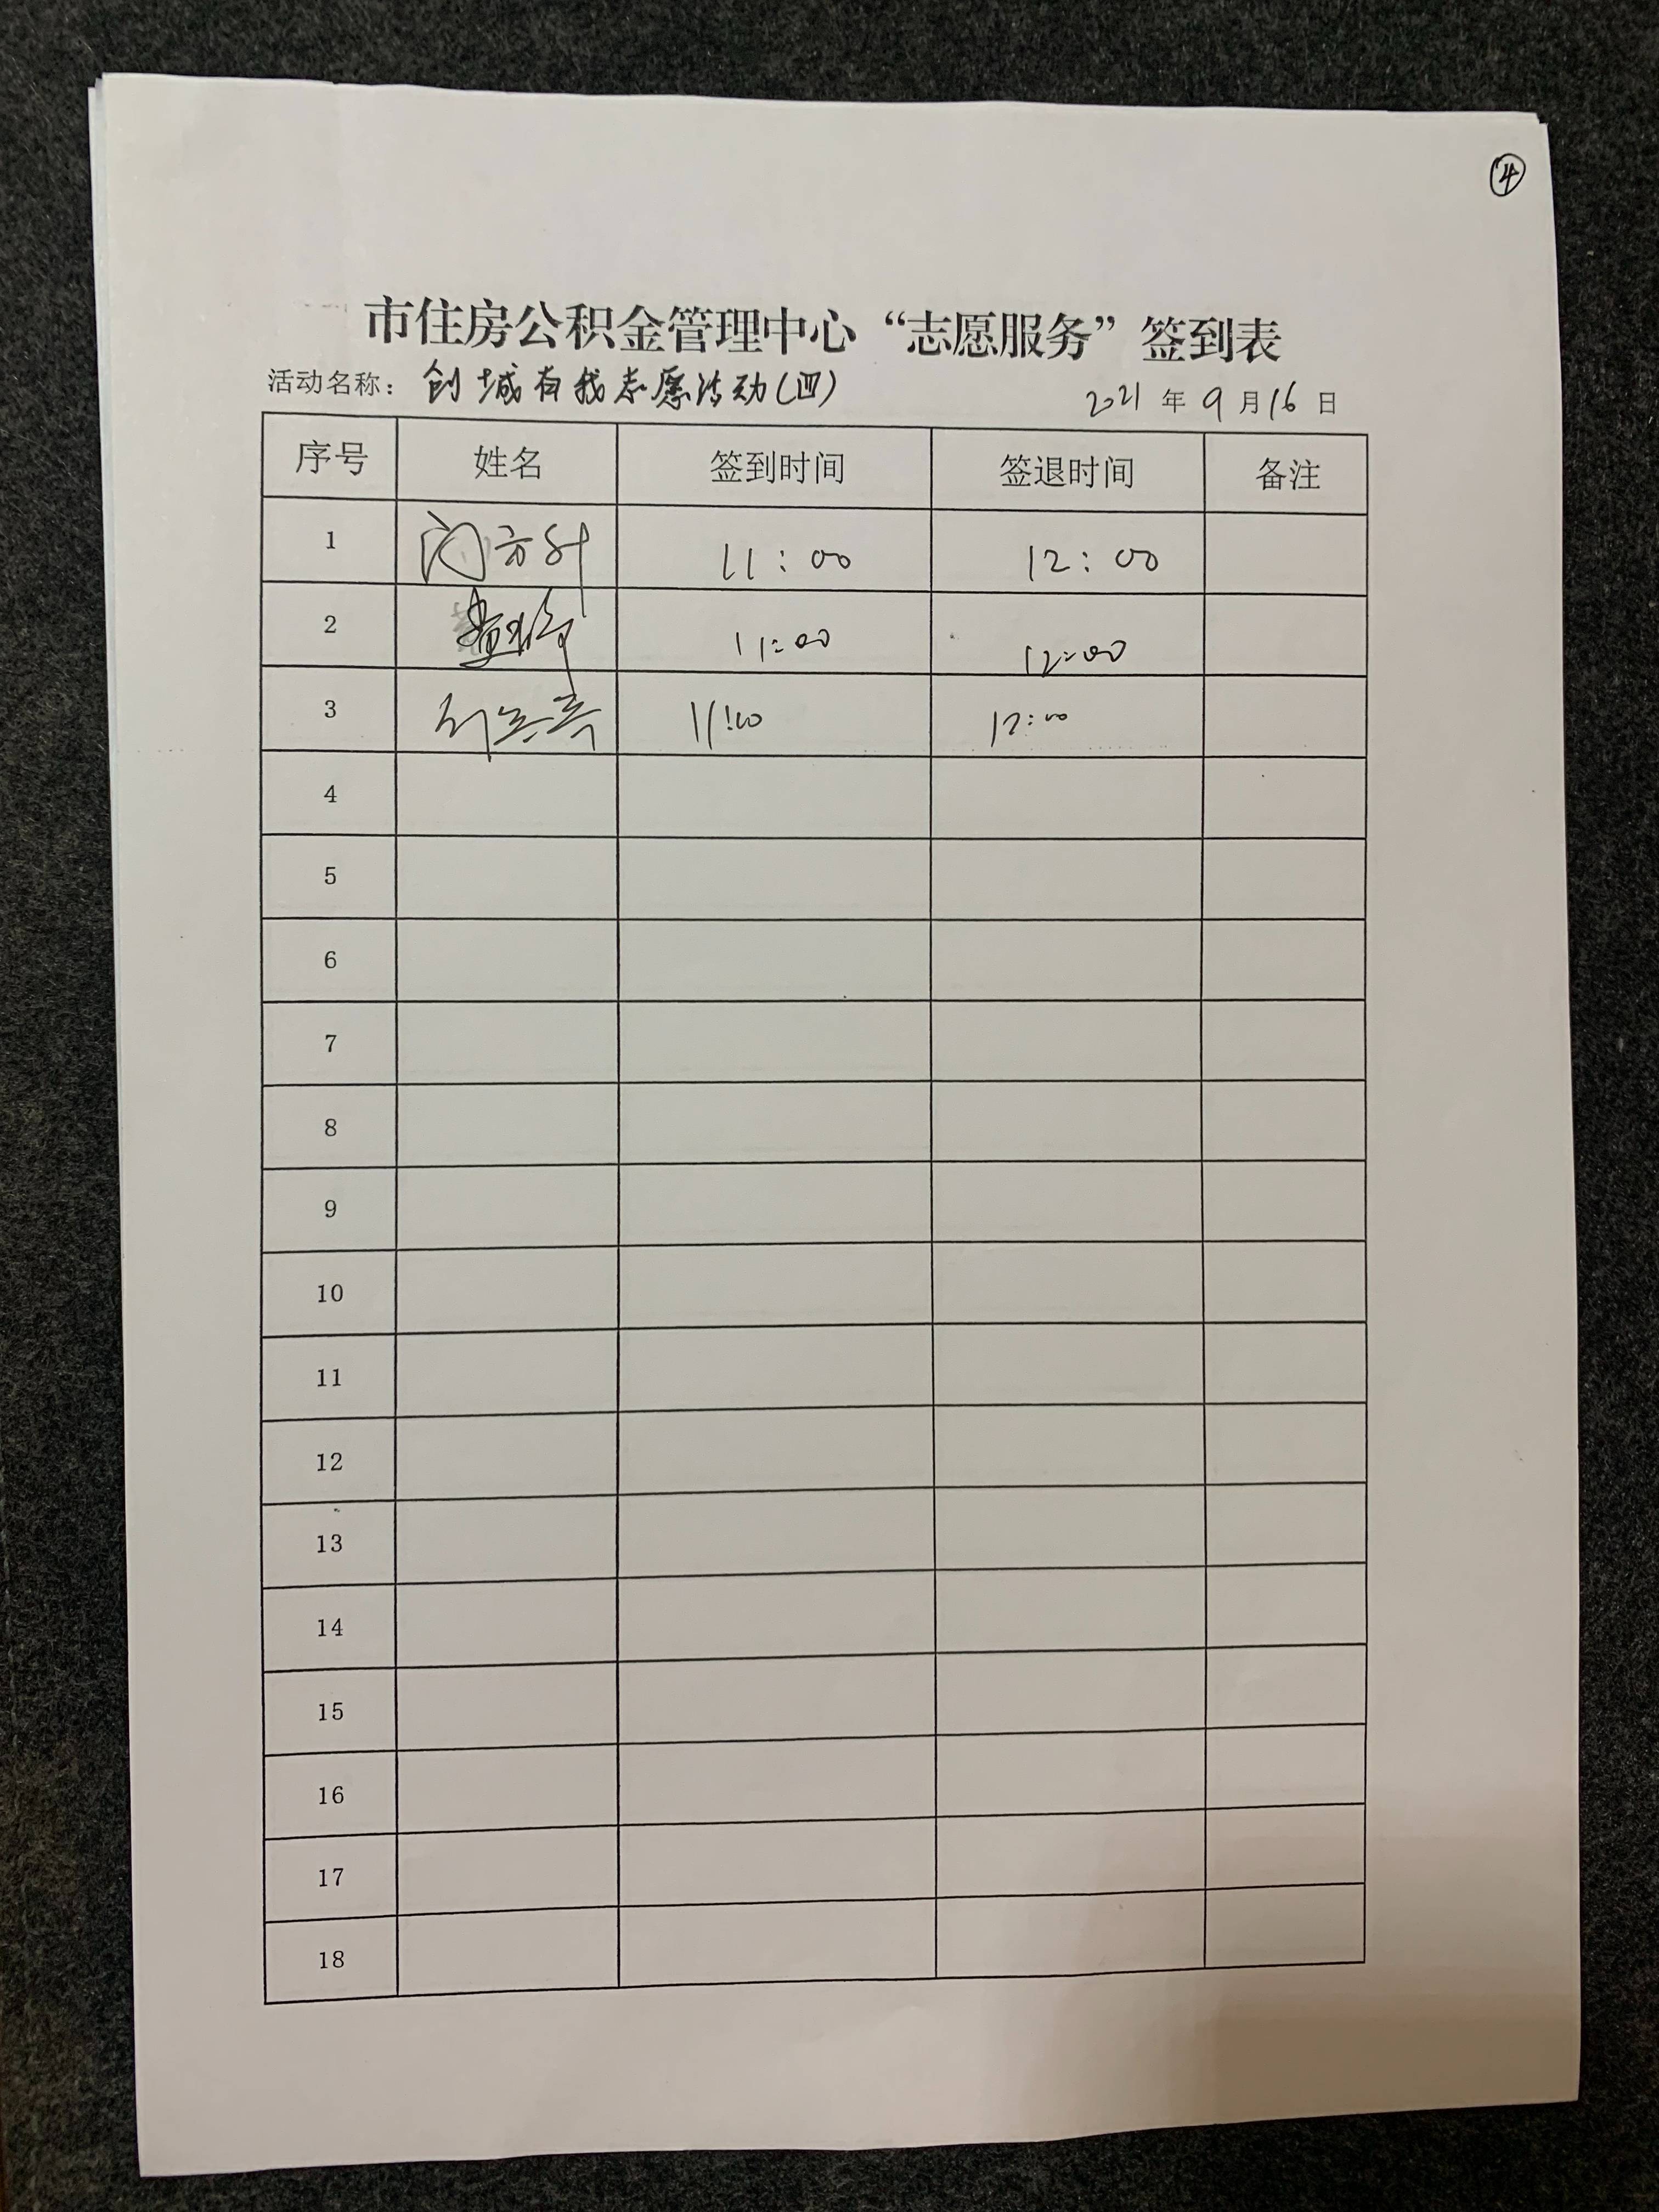 ④
市住房公积金管理中心“志愿服务”签到表
活动名称：创城有我志愿活动(四) 2021年9月16日
序号 姓名 签到时间 签退时间 备注
1 11:00 12:00
2 11:00 12:00
3 11:00 12:00
4
5
6
7
8
9
10
11
12
13
14
15
16
17
18